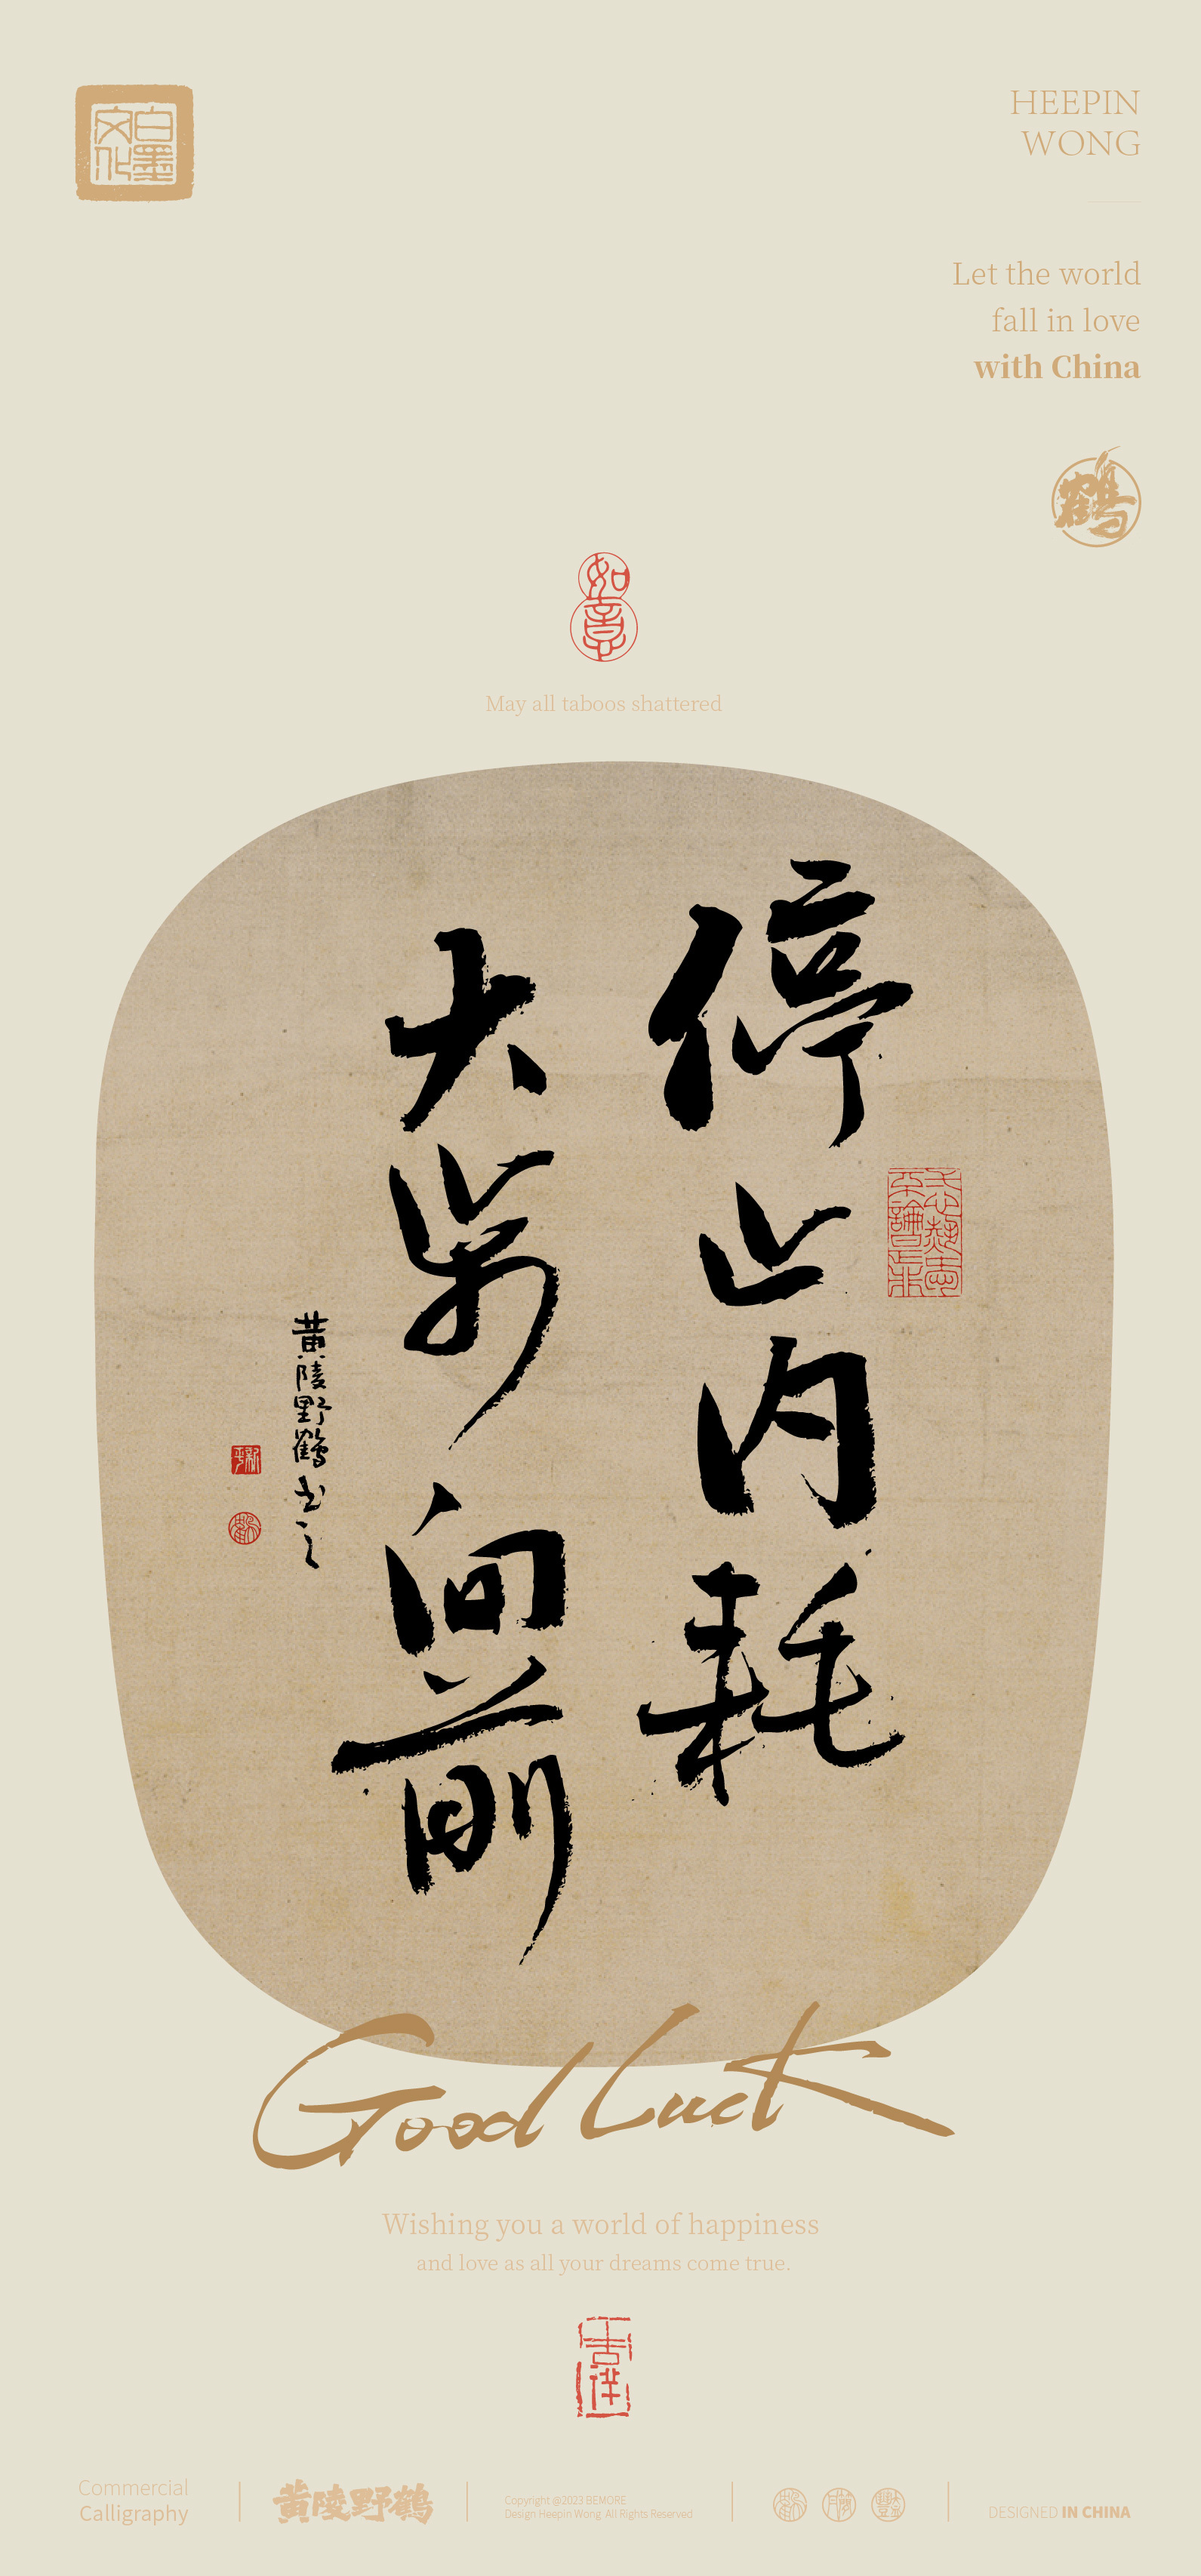 白墨
文化
HEEPIN
WONG
Let the world
fall in love
with China
鶴
如意
May all taboos shattered
停止内耗
大步向前
黄陵野鶴书之
Good Luck
Wishing you a world of happiness
and love as all your dreams come true.
吉祥
Commercial
Calligraphy
黄陵野鶴
Copyright @2023 BEMORE
Design Heepin Wong All Rights Reserved
DESIGNED IN CHINA